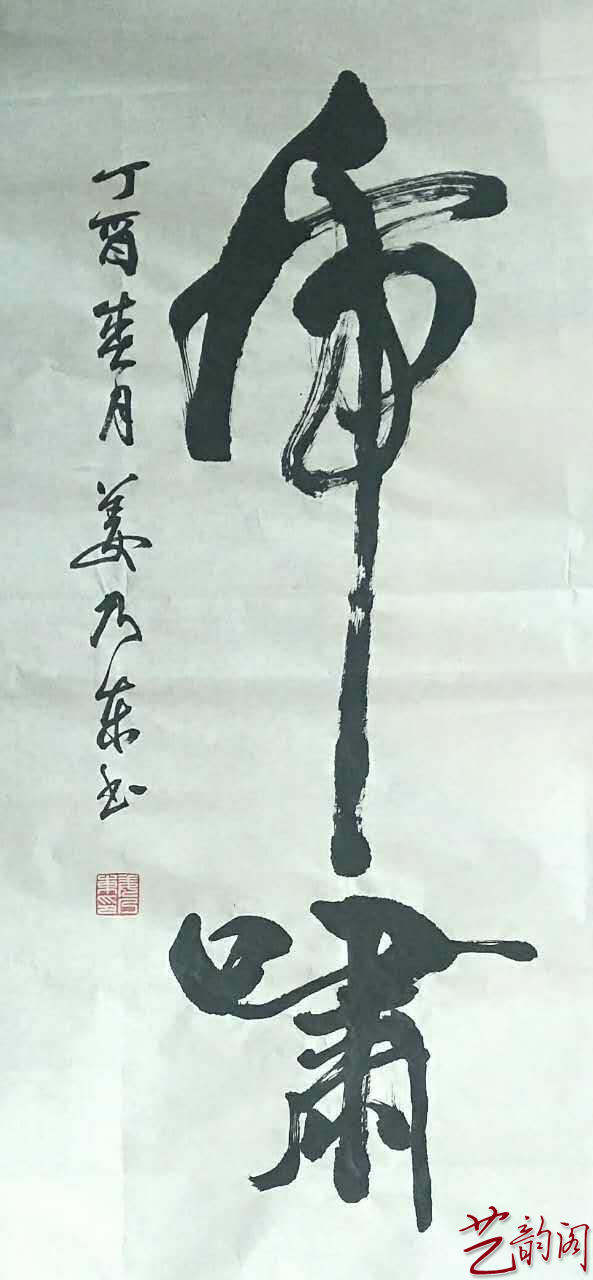 虎啸
丁酉春月姜乃东书
艺韵阁